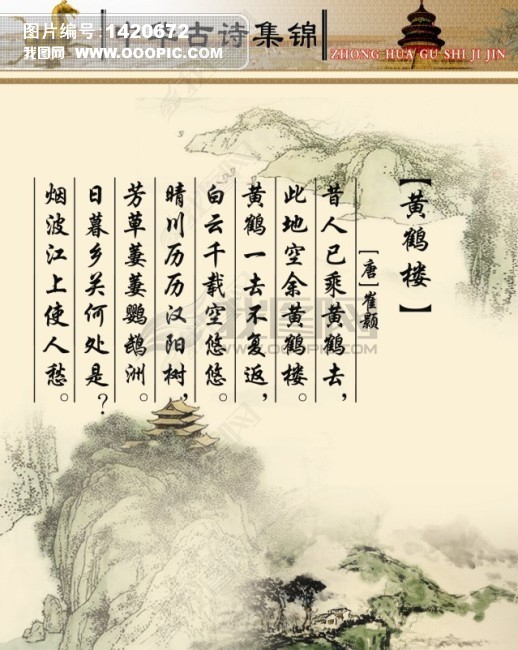 图片编号:1420672
我图网 www.OOOPIC.com
古诗集锦
ZHONG HUA GU SHI JI JIN
【黄鹤楼】
[唐]崔颢
昔人已乘黄鹤去，
此地空余黄鹤楼。
黄鹤一去不复返，
白云千载空悠悠。
晴川历历汉阳树，
芳草萋萋鹦鹉洲。
日暮乡关何处是？
烟波江上使人愁。
我图网
WWW.OOOPIC.COM